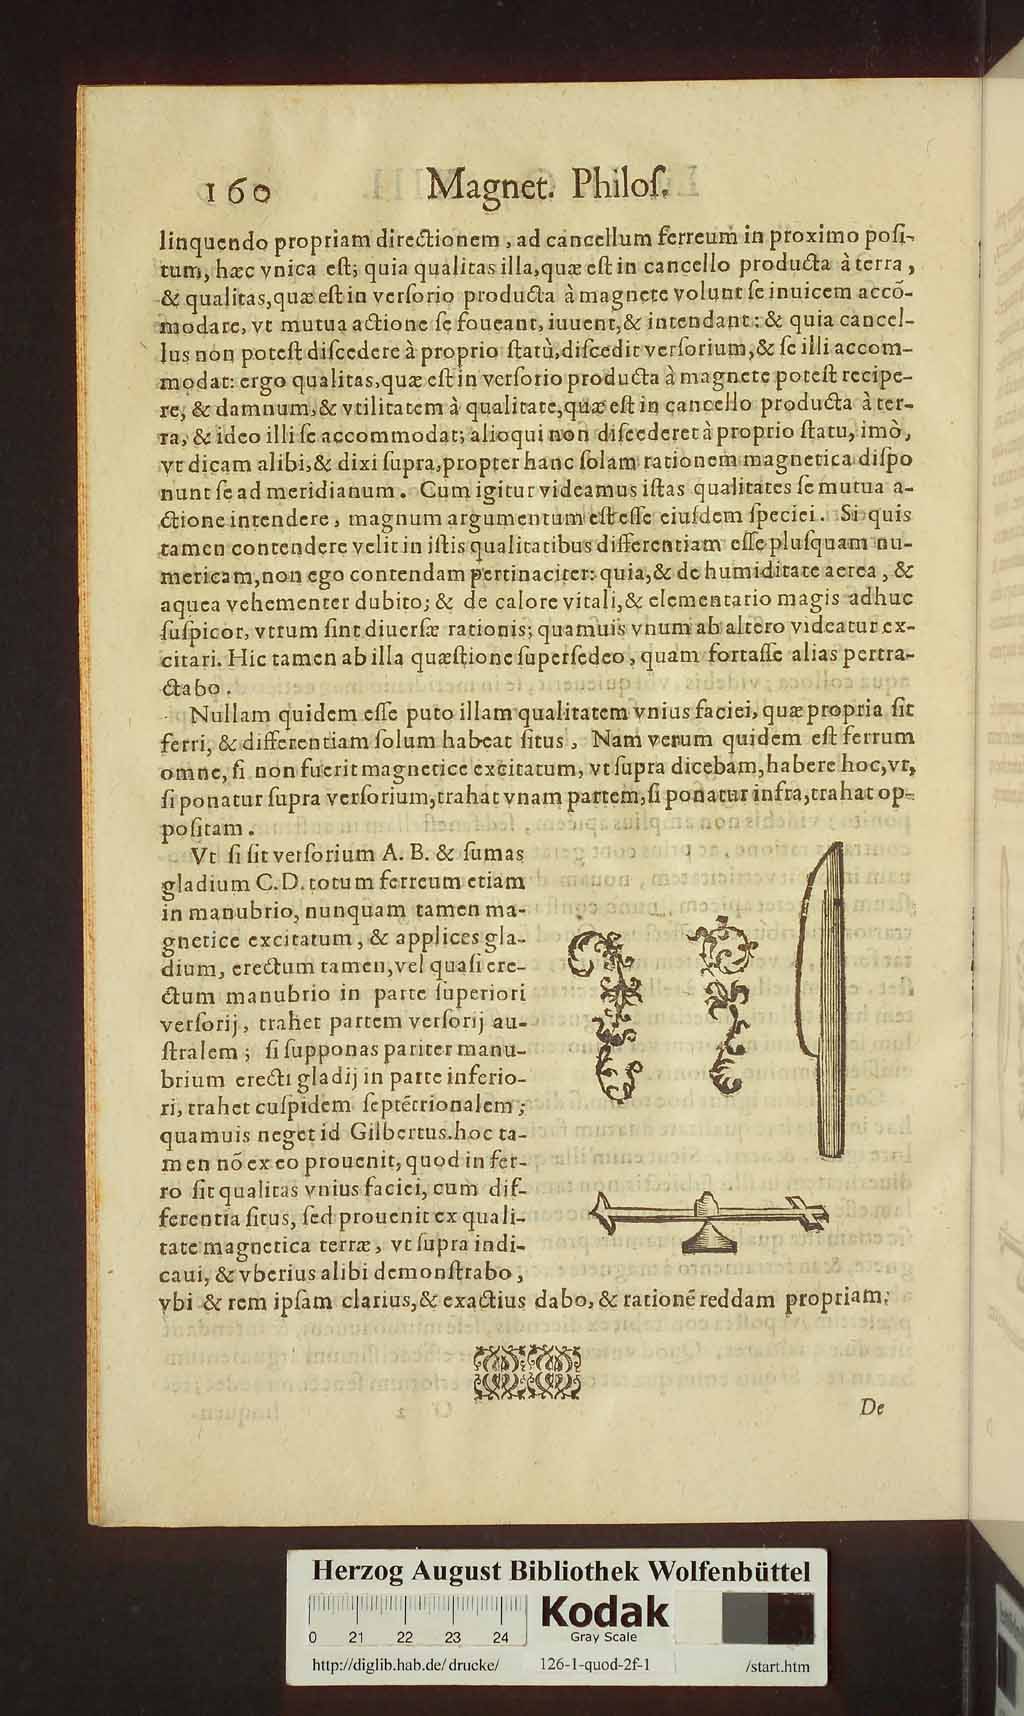 160 Magnet. Philoſ.
linquendo propriam directionem, ad cancellum ferreum in proximo poſi-
tum, hæc vnica eſt; quia qualitas illa, quæ eſt in cancello producta à terra,
& qualitas, quæ eſt in verſorio producta à magnete volunt ſe inuicem accõ-
modare, vt mutua actione ſe foueant, iuuent, & intendant: & quia cancel-
lus non poteſt diſcedere à proprio ſtatù, diſcedit verſorium, & ſe illi accom-
modat: ergo qualitas, quæ eſt in verſorio producta à magnete poteſt recipe-
re, & damnum, & vtilitatem à qualitate, quæ eſt in cancello producta à ter-
ra, & ideo illi ſe accommodat; alioqui non diſcederet à proprio ſtatu, imò,
vt dicam alibi, & dixi ſupra, propter hanc ſolam rationem magnetica diſpo
nunt ſe ad meridianum. Cum igitur videamus iſtas qualitates ſe mutua a-
ctione intendere, magnum argumentum eſt eſſe eiuſdem ſpeciei. Si quis
tamen contendere velit in iſtis qualitatibus differentiam eſſe pluſquam nu-
mericam, non ego contendam pertinaciter: quia, & de humiditate aerea, &
aquea vehementer dubito; & de calore vitali, & elementario magis adhuc
ſuſpicor, vtrum ſint diuerſæ rationis; quamuis vnum ab altero videatur ex-
citari. Hic tamen ab illa quæſtione ſuperſedeo, quam fortaſſe alias pertra-
ctabo.
Nullam quidem eſſe puto illam qualitatem vnius faciei, quæ propria ſit
ferri, & differentiam ſolum habeat ſitus, Nam verum quidem eſt ferrum
omne, ſi non fuerit magnetice excitatum, vt ſupra dicebam, habere hoc, vt,
ſi ponatur ſupra verſorium, trahat vnam partem, ſi ponatur infra, trahat op-
poſitam.
Vt ſi ſit verſorium A. B. & ſumas
gladium C. D. totum ferreum etiam
in manubrio, nunquam tamen ma-
gnetice excitatum, & applices gla-
dium, erectum tamen, vel quaſi ere-
ctum manubrio in parte ſuperiori
verſorij, trahet partem verſorij au-
ſtralem; ſi ſupponas pariter manu-
brium erecti gladij in parte inferio-
ri, trahet cuſpidem ſeptẽtrionalem;
quamuis neget id Gilbertus. hoc ta-
men nõ ex eo prouenit, quod in fer-
ro ſit qualitas vnius faciei, cum dif-
ferentia ſitus, ſed prouenit ex quali-
tate magnetica terræ, vt ſupra indi-
caui, & vberius alibi demonſtrabo,
vbi & rem ipſam clarius, & exactius dabo, & rationẽ reddam propriam.
De
Herzog August Bibliothek Wolfenbüttel
0 21 22 23 24
Kodak
Gray Scale
http://diglib.hab.de/drucke/ 126-1-quod-2f-1 /start.htm